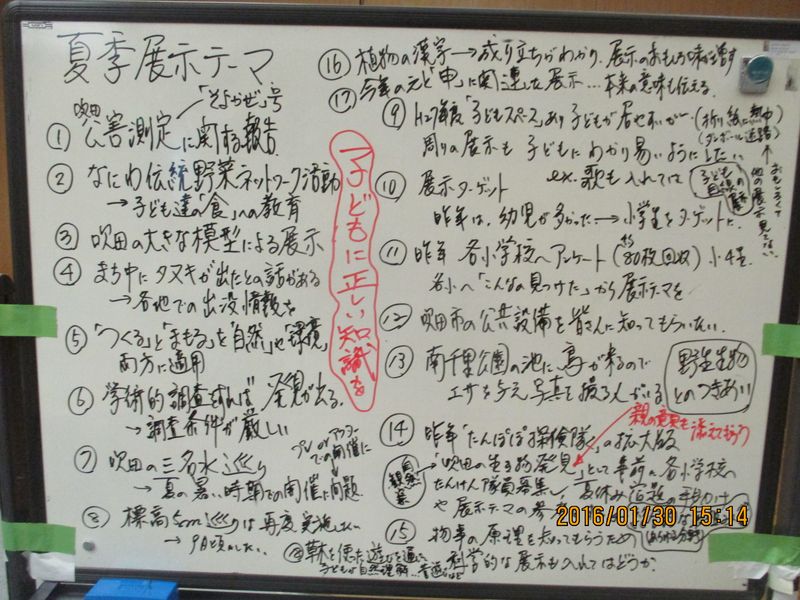 夏季展示テーマ
「そよかぜ」号
① 吹田公害測定に関する報告
② なにわ伝統野菜ネットワーク活動
→子ども達の「食」への教育
③ 吹田の大きな模型による展示
④ まち中にタヌキが出たとの話がある
→各地での出没情報を
⑤ 「つくる」と「まもる」を「自然」や「環境」
両方に適用
⑥ 学術的調査すれば発見が出る。
→調査条件が厳しい
⑦ 吹田の三名水巡り
→夏の暑い時期での開催に問題
プレ or アフターでの開催に
⑧ 標高5m巡りは再度実施したい
→9月頃
子どもに正しい知識を
⑯ 植物の漢字→成り立ちがわかり、展示のおもしろ味が増す
⑰ 今年のえと「申」に関連した展示…本来の意味も伝える。
⑨ H27年度「子どもスペース」あり子どもが
(折り紙に熱中
(ダンボール迷路)
周りの展示も子どもにわかり易いようにしたい
おもしろくて他の展示見てない
⑩ 展示ターゲット ex. 歌も入れては
昨年は、幼児が多かった→小学生をターゲットに
⑪ 昨年 各小学校へアンケート(約80枚回収)小4生
各小へ「こんなの見つけた」から展示テーマを
⑫ 吹田市の公共設備を皆さんに知ってもらいたい
⑬ 南千里公園の池に鳥が来るので
エサを与え写真を撮る人がいる
野生生物とのつきあい
⑭ 昨年「たんぽぽ探検隊」の拡大版
親の意見も添えてもらう
→「吹田の生き物発見」として事前に各小学校へ
たんけん隊員募集 夏休み宿題の手助け
や展示テーマの参考
⑮ 物事の原理を知ってもらうため
科学的な展示も入れてはどうか。
2016/01/30 15:14